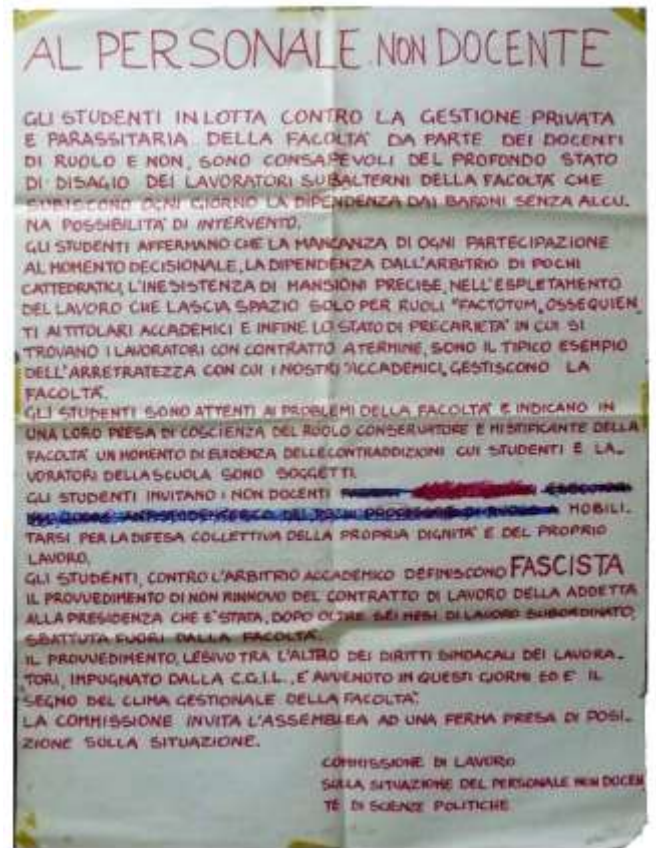 AL PERSONALE NON DOCENTE
GLI STUDENTI IN LOTTA CONTRO LA GESTIONE PRIVATA
E PARASSITARIA DELLA FACOLTA' DA PARTE DEI DOCENTI
DI RUOLO E NON, SONO CONSAPEVOLI DEL PROFONDO STATO
DI DISAGIO DEI LAVORATORI SUBALTERNI DELLA FACOLTA' CHE
SUBISCONO OGNI GIORNO LA DIPENDENZA DAI BARONI SENZA ALCU-
NA POSSIBILITA' DI INTERVENTO.
GLI STUDENTI AFFERMANO CHE LA MANCANZA DI OGNI PARTECIPAZIONE
AL MOMENTO DECISIONALE, LA DIPENDENZA DALL'ARBITRIO DI POCHI
CATTEDRATICI, L'INESISTENZA DI MANSIONI PRECISE, NELL'ESPLETAMENTO
DEL LAVORO CHE LASCIA SPAZIO SOLO PER RUOLI "FACTOTUM, OSSEQUIEN
TI AI TITOLARI ACCADEMICI E INFINE LO STATO DI PRECARIETA' IN CUI SI
TROVANO I LAVORATORI CON CONTRATTO A TERMINE, SONO IL TIPICO ESEMPIO
DELL'ARRETRATEZZA CON CUI I NOSTRI "ACCADEMICI, GESTISCONO LA
FACOLTA'.
GLI STUDENTI SONO ATTENTI AI PROBLEMI DELLA FACOLTA' E INDICANO IN
UNA LORO PRESA DI COSCIENZA DEL RUOLO CONSERVATORE E MISTIFICANTE DELLA
FACOLTA' UN MOMENTO DI EVIDENZA DELLE CONTRADDIZIONI CUI STUDENTI E LA-
VORATORI DELLA SCUOLA SONO SOGGETTI.
GLI STUDENTI INVITANO I NON DOCENTI
A MOBILI-
TARSI PER LA DIFESA COLLETTIVA DELLA PROPRIA DIGNITA' E DEL PROPRIO
LAVORO.
GLI STUDENTI, CONTRO L'ARBITRIO ACCADEMICO DEFINISCONO FASCISTA
IL PROVVEDIMENTO DI NON RINNOVO DEL CONTRATTO DI LAVORO DELLA ADDETTA
ALLA PRESIDENZA CHE E' STATA, DOPO OLTRE SEI MESI DI LAVORO SUBORDINATO,
SBATTUTA FUORI DALLA FACOLTA'.
IL PROVVEDIMENTO, LESIVO TRA L'ALTRO DEI DIRITTI SINDACALI DEI LAVORA-
TORI, IMPUGNATO DALLA C.G.I.L., E' AVVENUTO IN QUESTI GIORNI ED E' IL
SEGNO DEL CLIMA GESTIONALE DELLA FACOLTA'.
LA COMMISSIONE INVITA L'ASSEMBLEA AD UNA FERMA PRESA DI POSI-
ZIONE SULLA SITUAZIONE.
COMMISSIONE DI LAVORO
SULLA SITUAZIONE DEL PERSONALE NON DOCEN
TE DI SCIENZE POLITICHE